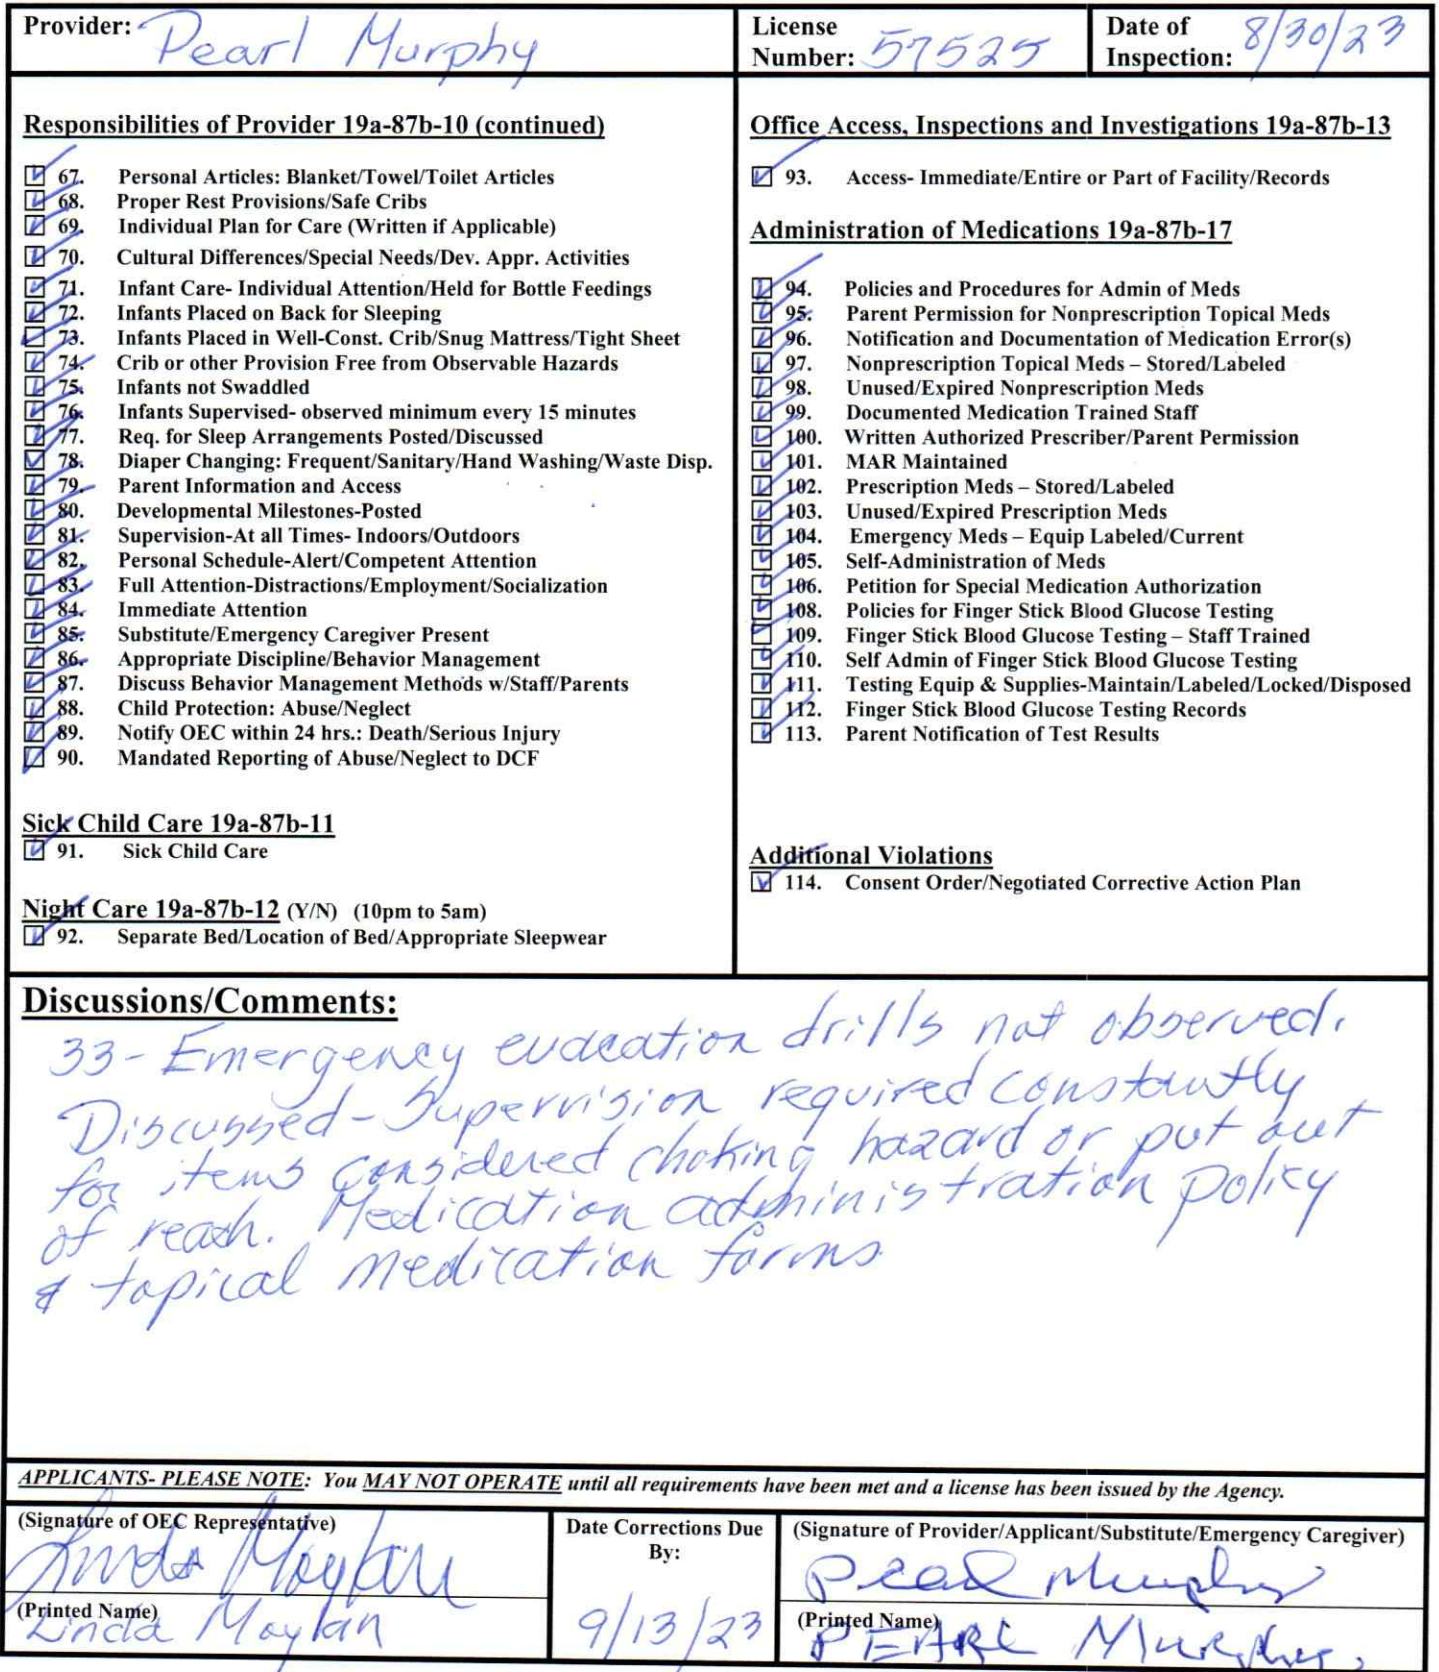 Provider: Pearl Murphy
License Number: 57525
Date of Inspection: 8/30/23
Responsibilities of Provider 19a-87b-10 (continued)
67. Personal Articles: Blanket/Towel/Toilet Articles
68. Proper Rest Provisions/Safe Cribs
69. Individual Plan for Care (Written if Applicable)
70. Cultural Differences/Special Needs/Dev. Appr. Activities
71. Infant Care- Individual Attention/Held for Bottle Feedings
72. Infants Placed on Back for Sleeping
73. Infants Placed in Well-Const. Crib/Snug Mattress/Tight Sheet
74. Crib or other Provision Free from Observable Hazards
75. Infants not Swaddled
76. Infants Supervised- observed minimum every 15 minutes
77. Req. for Sleep Arrangements Posted/Discussed
78. Diaper Changing: Frequent/Sanitary/Hand Washing/Waste Disp.
79. Parent Information and Access
80. Developmental Milestones-Posted
81. Supervision-At all Times- Indoors/Outdoors
82. Personal Schedule-Alert/Competent Attention
83. Full Attention-Distractions/Employment/Socialization
84. Immediate Attention
85. Substitute/Emergency Caregiver Present
86. Appropriate Discipline/Behavior Management
87. Discuss Behavior Management Methods w/Staff/Parents
88. Child Protection: Abuse/Neglect
89. Notify OEC within 24 hrs.: Death/Serious Injury
90. Mandated Reporting of Abuse/Neglect to DCF
Sick Child Care 19a-87b-11
91. Sick Child Care
Night Care 19a-87b-12 (Y/N) (10pm to 5am)
92. Separate Bed/Location of Bed/Appropriate Sleepwear
Office Access, Inspections and Investigations 19a-87b-13
93. Access- Immediate/Entire or Part of Facility/Records
Administration of Medications 19a-87b-17
94. Policies and Procedures for Admin of Meds
95. Parent Permission for Nonprescription Topical Meds
96. Notification and Documentation of Medication Error(s)
97. Nonprescription Topical Meds – Stored/Labeled
98. Unused/Expired Nonprescription Meds
99. Documented Medication Trained Staff
100. Written Authorized Prescriber/Parent Permission
101. MAR Maintained
102. Prescription Meds – Stored/Labeled
103. Unused/Expired Prescription Meds
104. Emergency Meds – Equip Labeled/Current
105. Self-Administration of Meds
106. Petition for Special Medication Authorization
108. Policies for Finger Stick Blood Glucose Testing
109. Finger Stick Blood Glucose Testing – Staff Trained
110. Self Admin of Finger Stick Blood Glucose Testing
111. Testing Equip & Supplies-Maintain/Labeled/Locked/Disposed
112. Finger Stick Blood Glucose Testing Records
113. Parent Notification of Test Results
Additional Violations
114. Consent Order/Negotiated Corrective Action Plan
Discussions/Comments:
33- Emergency evacation drills not observed.
Discussed - Supervision required constantly
for items considered choking hazard or put out
of reach. Medication administration policy
& topical medication forms
APPLICANTS- PLEASE NOTE: You MAY NOT OPERATE until all requirements have been met and a license has been issued by the Agency.
(Signature of OEC Representative)
Linda Moylan
(Printed Name)
Linda Moylan
Date Corrections Due By:
9/13/23
(Signature of Provider/Applicant/Substitute/Emergency Caregiver)
Pearl Murphy
(Printed Name)
PEARL Murphy